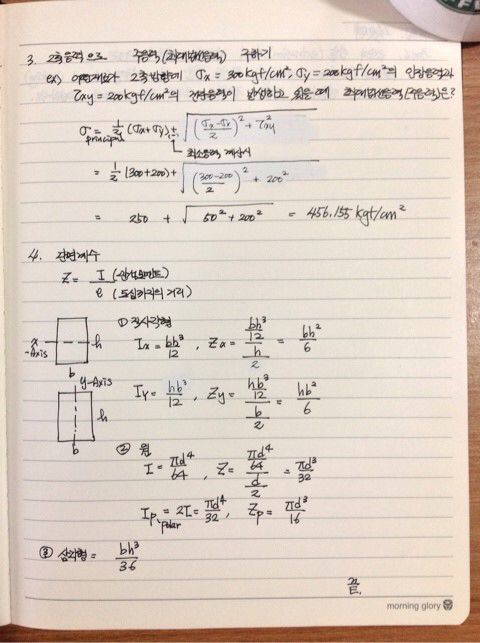 3. 2축응력으로 주응력(최대법선응력) 구하기
ex) 어떤재료가 2축방향에 σx = 300kgf/cm², σy = 200kgf/cm²의 인장응력과
τxy = 200kgf/cm²의 전단응력이 발생하고 있을때 최대법선응력(주응력)은?
σprincipal = 1/2 (σx+σy) ± √((σx-σy)/2)² + τxy²
최소응력, 계산시
= 1/2 (300+200) + √((300-200)/2)² + 200²
= 250 + √50² + 200² = 456.155 kgf/cm²
4. 단면계수
Z = I (관성모멘트) / e (도심까지의 거리)
① 직사각형
x-Axis h b
Ix = bh³/12 , Zx = (bh³/12)/(h/2) = bh²/6
y-Axis h b
Iy = hb³/12 , Zy = (hb³/12)/(b/2) = hb²/6
② 원
I = πd⁴/64 , Z = (πd⁴/64)/(d/2) = πd³/32
Ip polar = 2I = πd⁴/32 , Zp = πd³/16
③ 삼각형 = bh³/36
끝.
morning glory